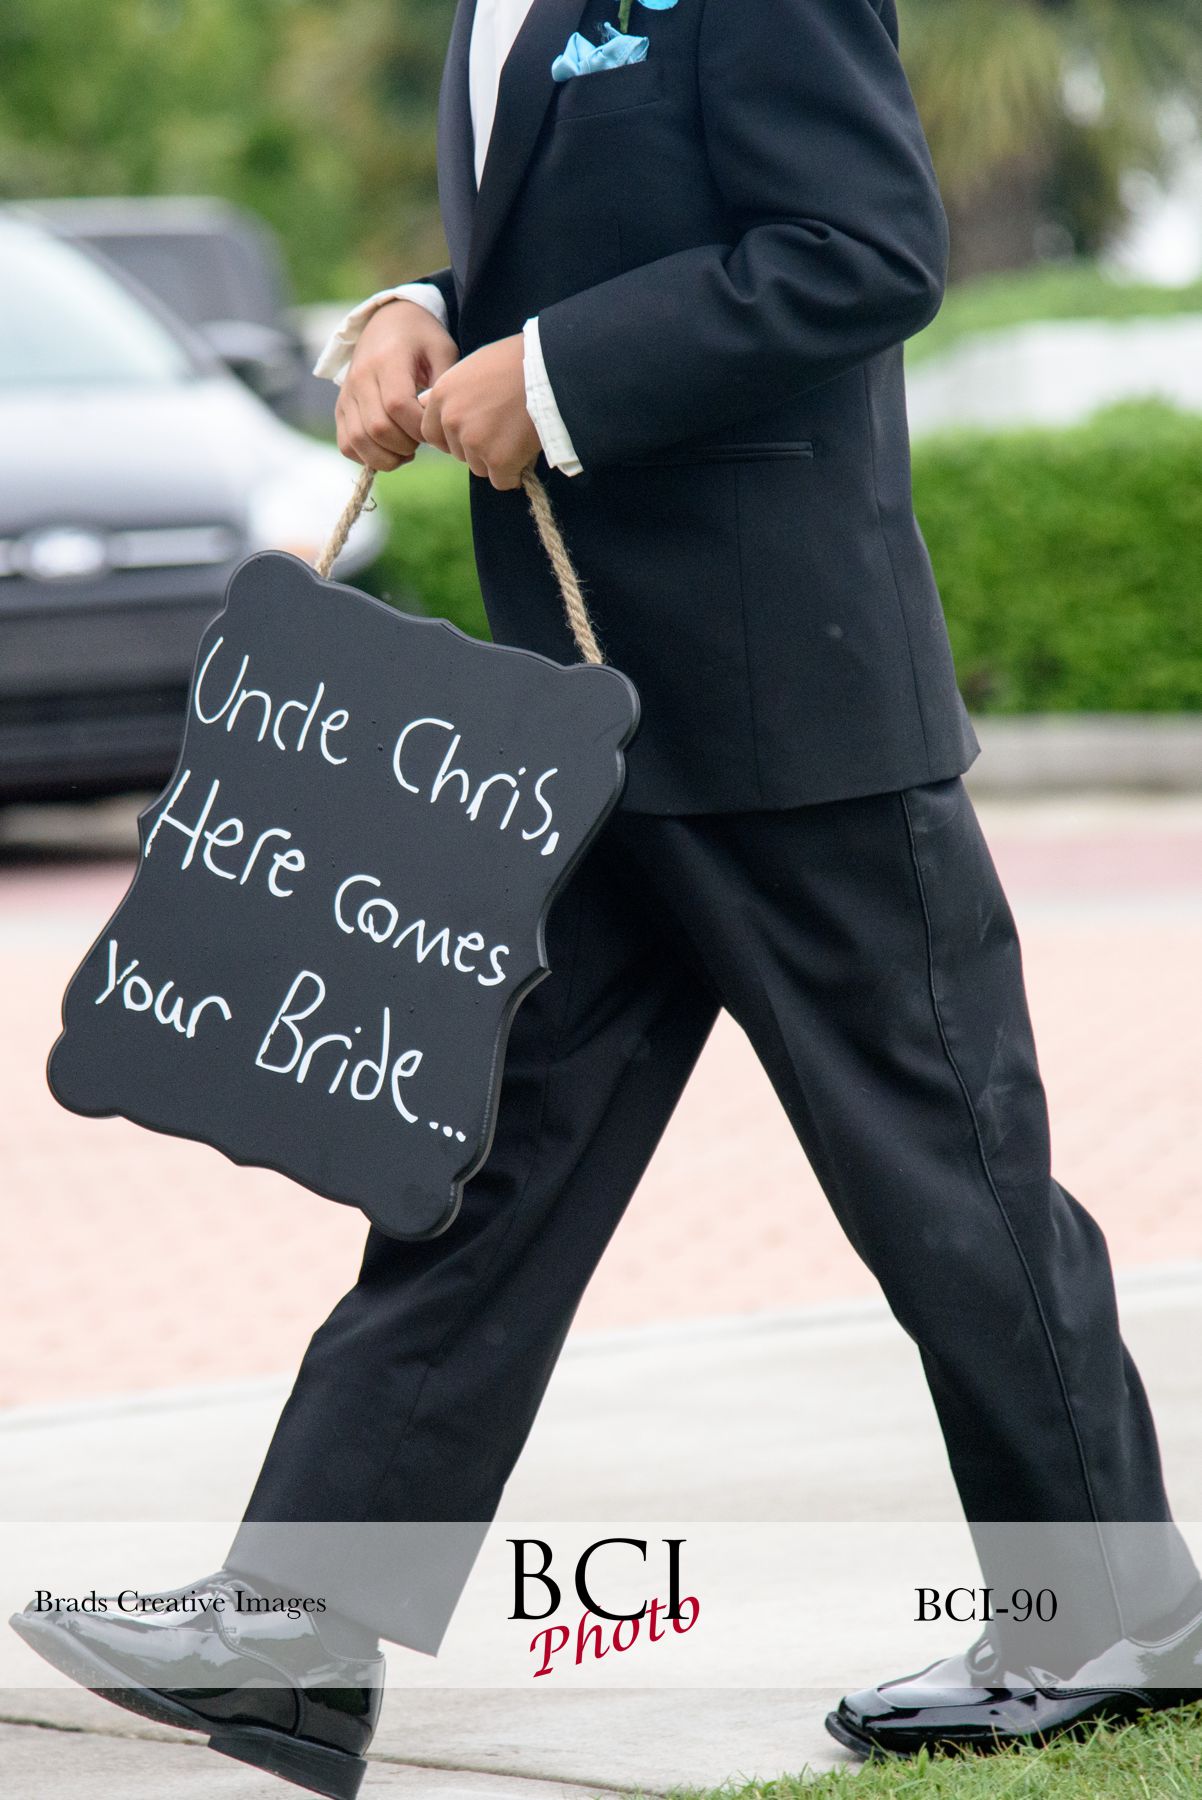 Uncle Chris,
Here comes
your Bride...
Brads Creative Images
BCI
Photo
BCI-90